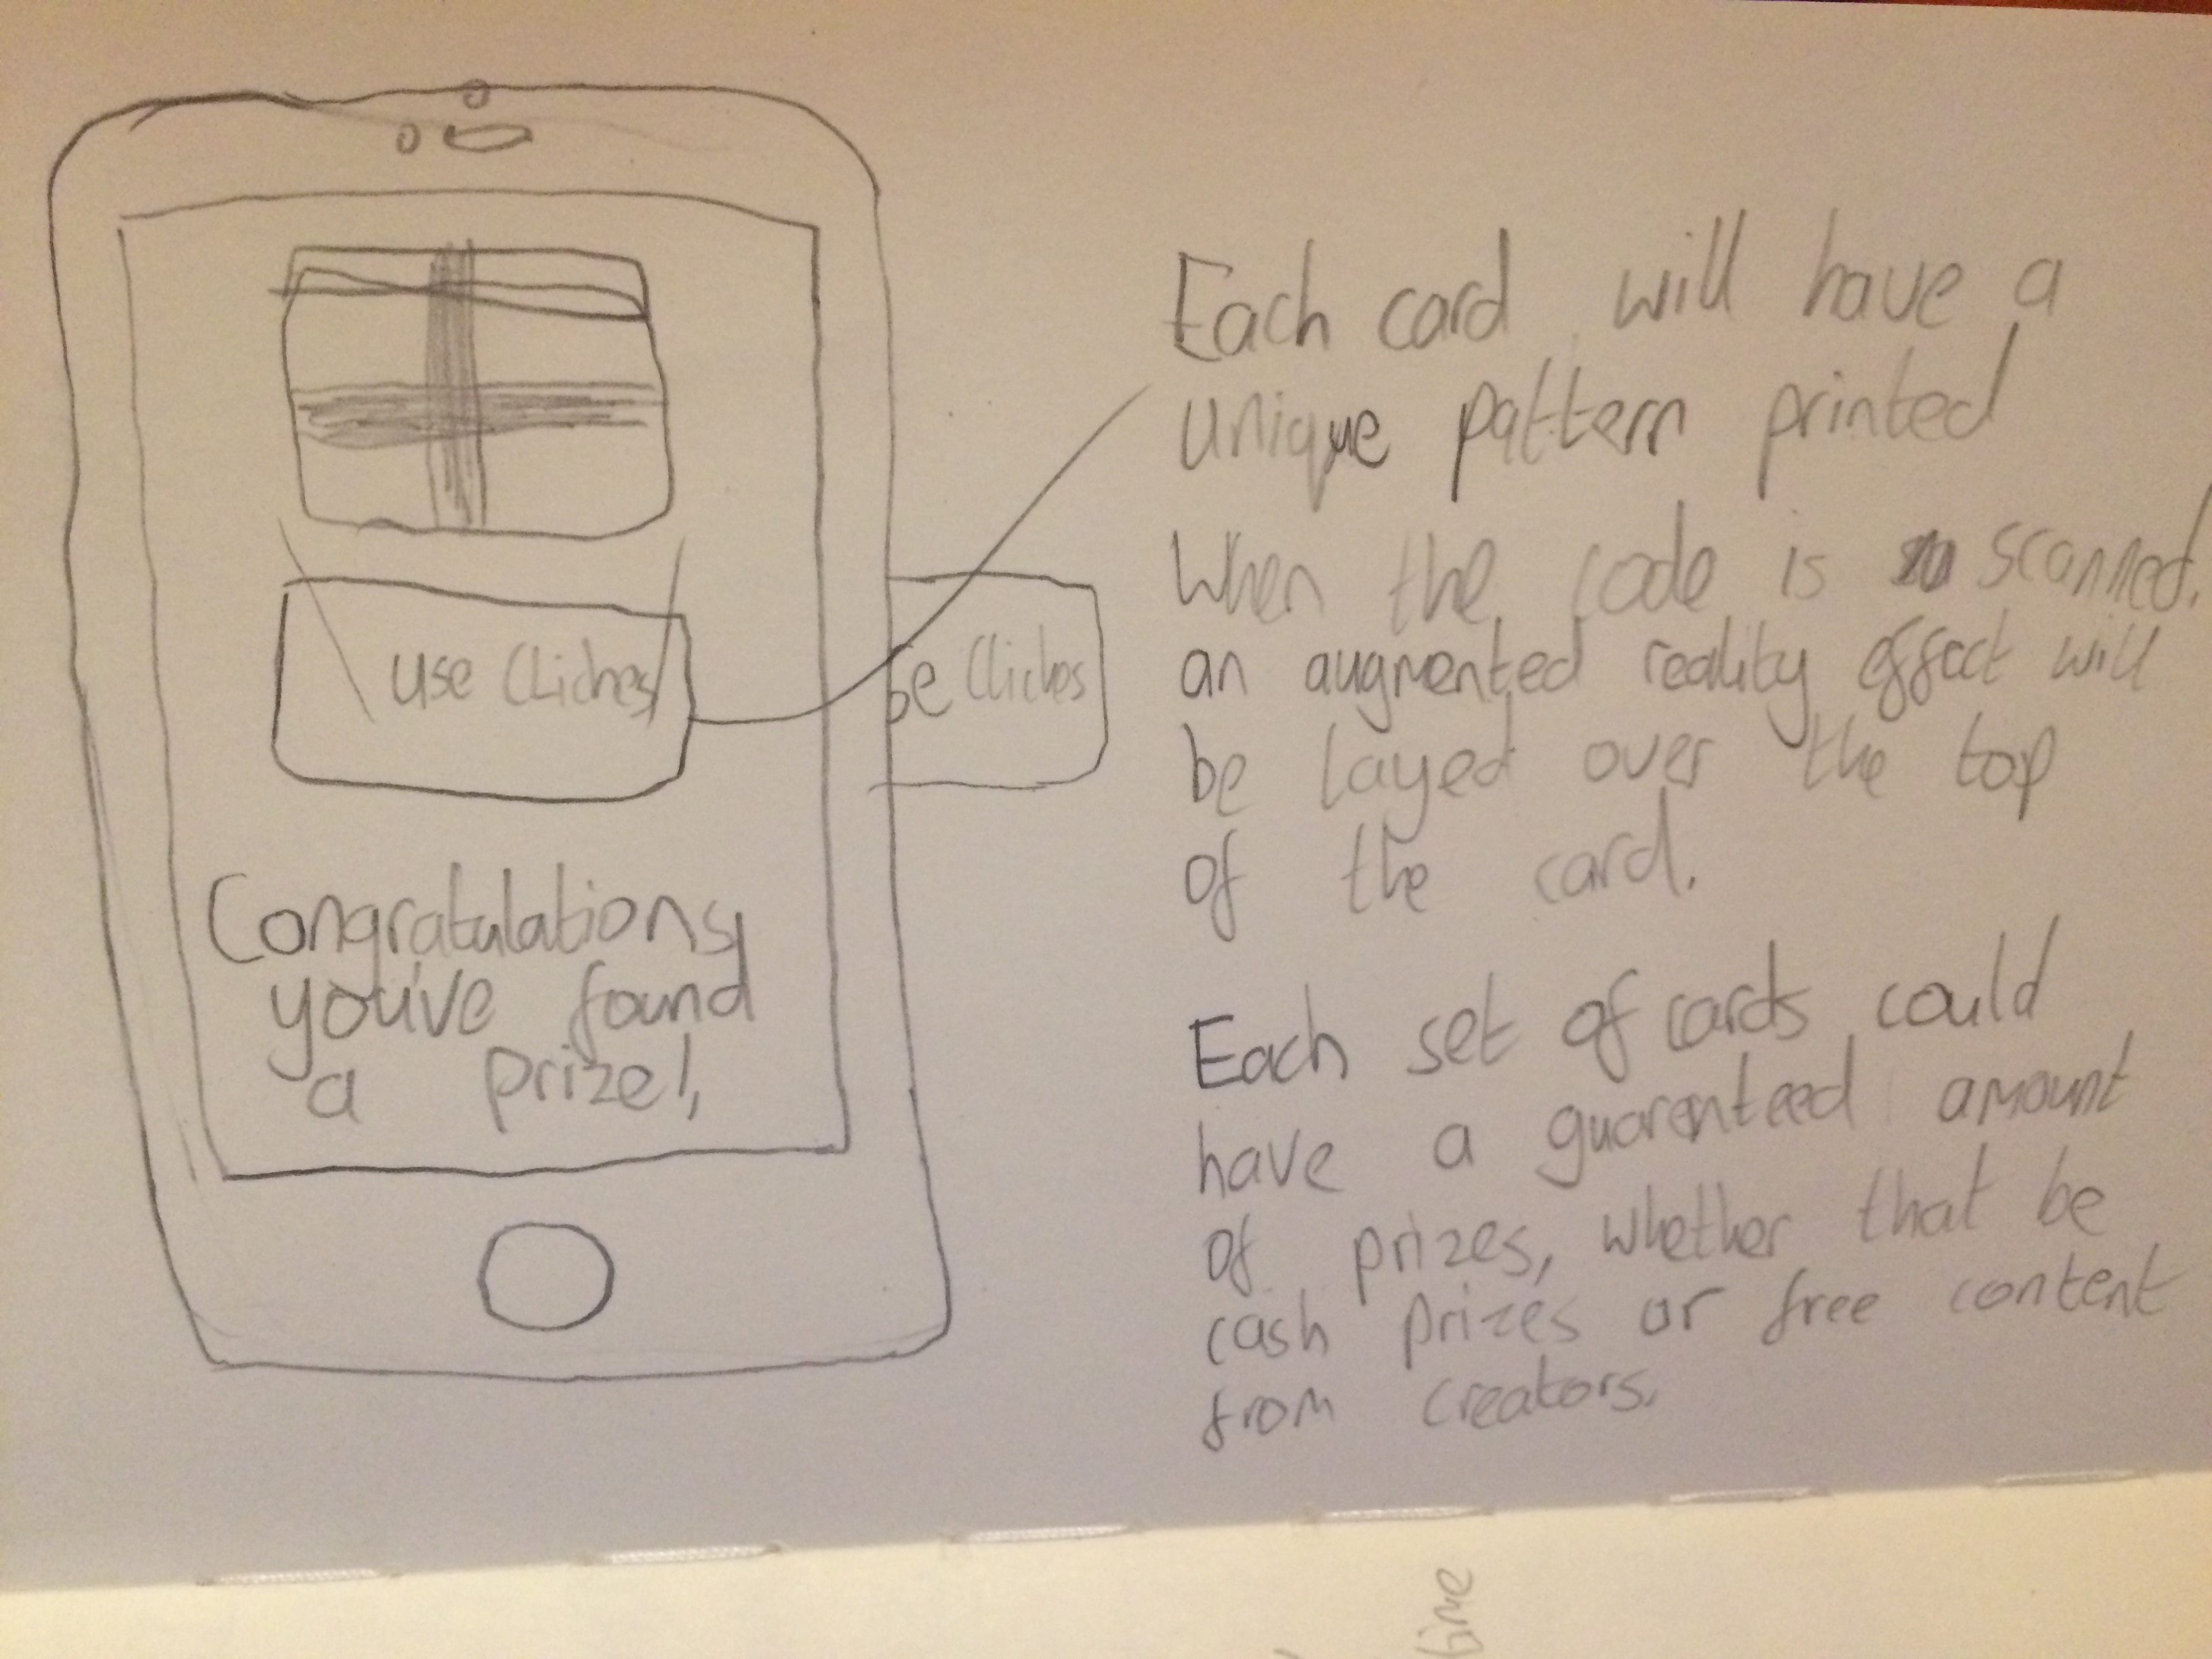 use Cliches
se Cliches
Congratulations,
you've found
a prize!,
Each card will have a
unique pattern printed
When the code is scanned,
an augmented reality effect will
be layed over the top
of the card.
Each set of cards could
have a guarenteed amount
of prizes, whether that be
cash prizes or free content
from creators.
time